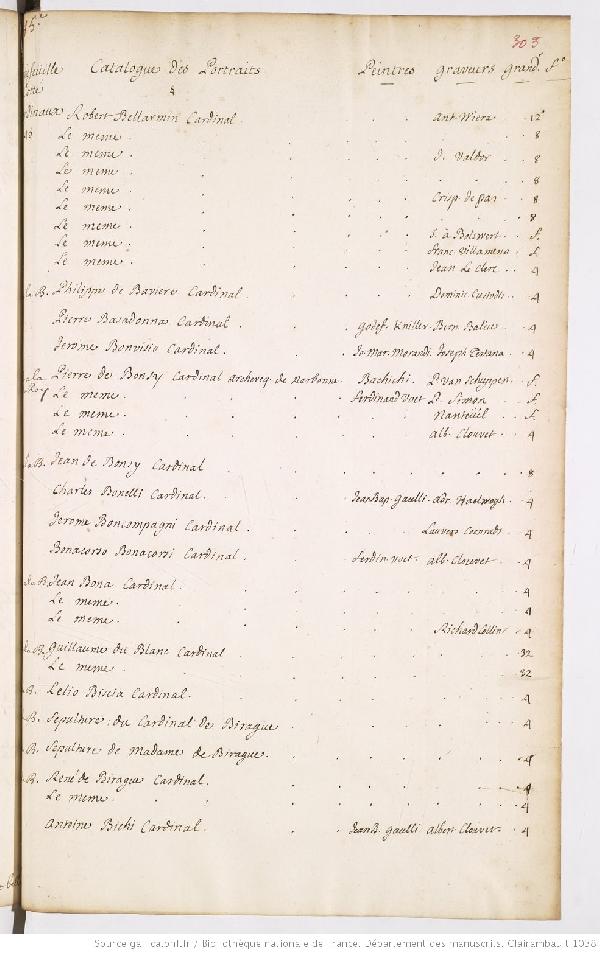 303
Catalogue des Portraits Peintres graveurs grand.r f.o
Robert Bellarmin Cardinal. Ant. Wierx 12
Le meme. 8
Le meme. J. Valdor 8
Le meme. 8
Le meme. Crisp. de pas 8
Le meme. 8
Le meme. J. à Bolswert f.
Le meme. franc. Villamena f.
Le meme. Jean Le Clerc 4
Philippe de Baviere Cardinal. Dominic Custodis 4
Pierre Basadonna Cardinal. Godef. Kniller. Bern Balliu 4
Jerome Bonvisio Cardinal. Jo. Mar. Morandi. Joseph Testana 4
Pierre de Bonsy Cardinal archeveq. de Narbonne Bachichi. P. Van Schuppen f.
Le meme. ferdinand Voet P. Simon f.
Le meme. Nanteüil f.
Le meme. alb. Clouvet 4
Jean de Bonsy Cardinal 8
Charles Bonelli Cardinal. Jean Bap. Gaulli. adr. Haelwegh 4
Jerome Boncompagni Cardinal. 4
Bonacorso Bonacorsi Cardinal. ferdin. voet. alb. Clouvet 4
Jean Bona Cardinal. 4
Le meme. 4
Le meme. Richard Collin 4
Guillaume du Blanc Cardinal 32
Le meme. 32
B. Lelio Biscia Cardinal. 4
B. Sepulture du Cardinal de Birague. 4
B. Sepulture de Madame de Birague. 4
B. René de Birague Cardinal. 4
Le meme. 4
Antoine Bichi Cardinal. Jean B. Gaulli albert Clouvet 4
Source gallica.bnf.fr / Bibliothèque nationale de France. Département des manuscrits. Clairambault 1038